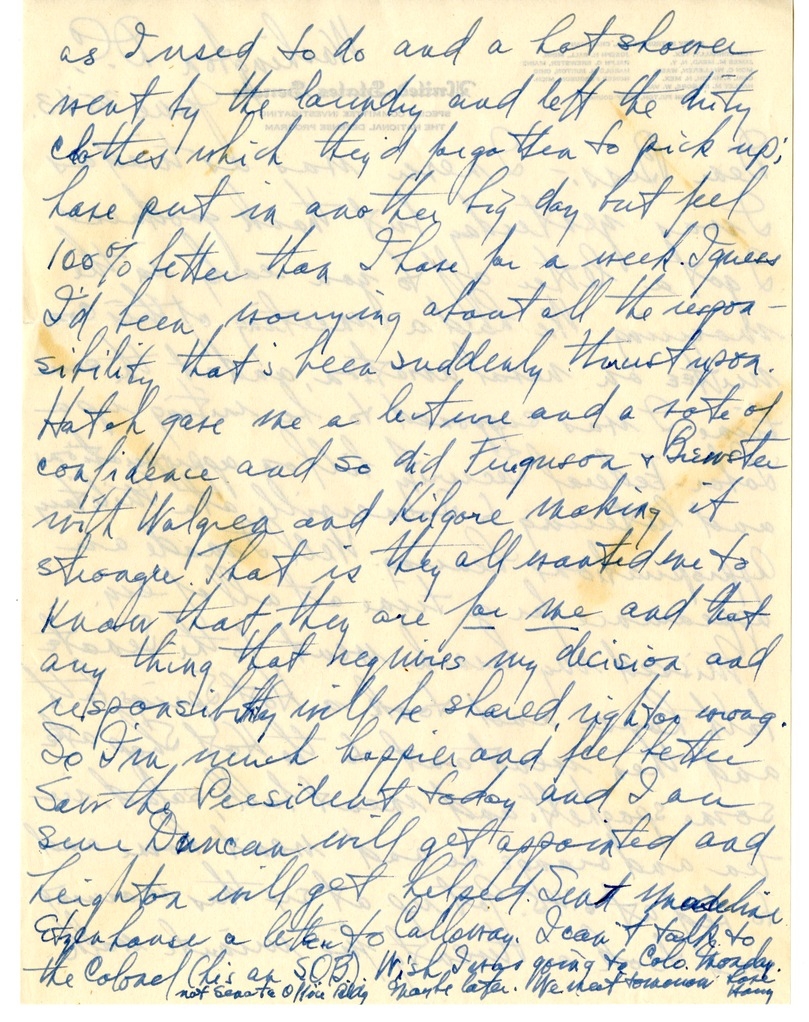 as I used to do and a hot shower
went by the laundry and left the dirty
clothes which they'd forgotten to pick up;
have put in another big day but feel
100% better than I have for a week. I guess
I'd been worrying about all the respon-
sibility that's been suddenly thrust upon.
Hatch gave me a lecture and a vote of
confidence and so did Ferguson & Brewster
with Walgren and Kilgore making it
stronger. That is they all wanted me to
know that they are for me and that
any thing that requires my decision and
responsibility will be shared, right or wrong.
So I'm much happier and feel better
Saw the President today and I am
sure Duncan will get appointed and
Leighton will get helped. Sent Madeline
Etzenhouse a letter to Calloway. I can't talk to
the Colonel (he's an S.O.B.). Wish I was going to Colo. Monday.
not Senate Office Bldg Maybe later. We meet tomorrow Love
Harry